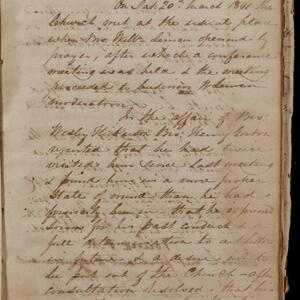 On Sat. 20th March 1841 the
Church met at the usual place
when Bro. Lemen opened by
prayer, after which a conference
meeting was held & the meeting
proceeded to business
moderator
In the affair of Bro.
Wesley Bro. Henry
reported that he had twice
visited him since last meeting
& found him in a more proper
State of mind than he had
previously been in that he
sorrow for his past conduct &
full determination to do better
in future & a desire not to
be put out of the Church - after
consultation Resolved that